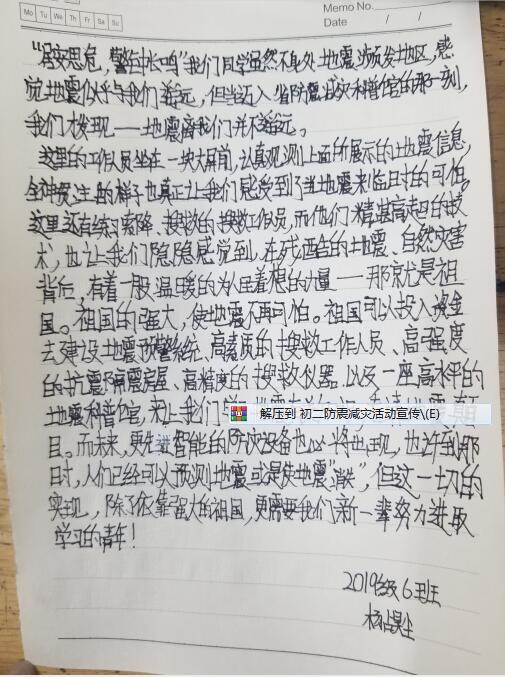 Mo Tu We Th Fr Sa Su
Memo No.
Date / /
“居安思危，警钟长鸣”我们同学虽然不身处地震频发地区，感
觉地震似乎与我们遥远，但当迈入省防震减灾科普馆的那一刻，
我们才发现——地震离我们并不遥远。
这里的工作人员坐在一块大屏前，认真观测上面所展示的地震信息，
全神贯注的样子也真正让我们感受到了当地震来临时的可怕。
这里还有练习索降、搜救的搜救工作员，而他们精湛高超的技
术，也让我们隐隐感觉到，在残酷的地震、自然灾害
背后，有着一股温暖的为人民着想的力量——那就是祖
国。祖国的强大，使地震不再可怕。祖国可以投入资金
去建设地震预警系统、高素质的搜救工作人员、高强度
的抗震隔震房屋、高精度的搜救仪器，以及一座高水平的
地震科普馆，来让我们
解压到 初二防震减灾活动宣传\(E)
目。而未来，更先进智能的防灾设备也必将出现，也许到那
日时，人们已经可以预测地震或是使地震“消失”，但这一切的
实现，除了依靠强大的祖国，更需要我们新一辈努力进取
学习的青年！
2019级6班